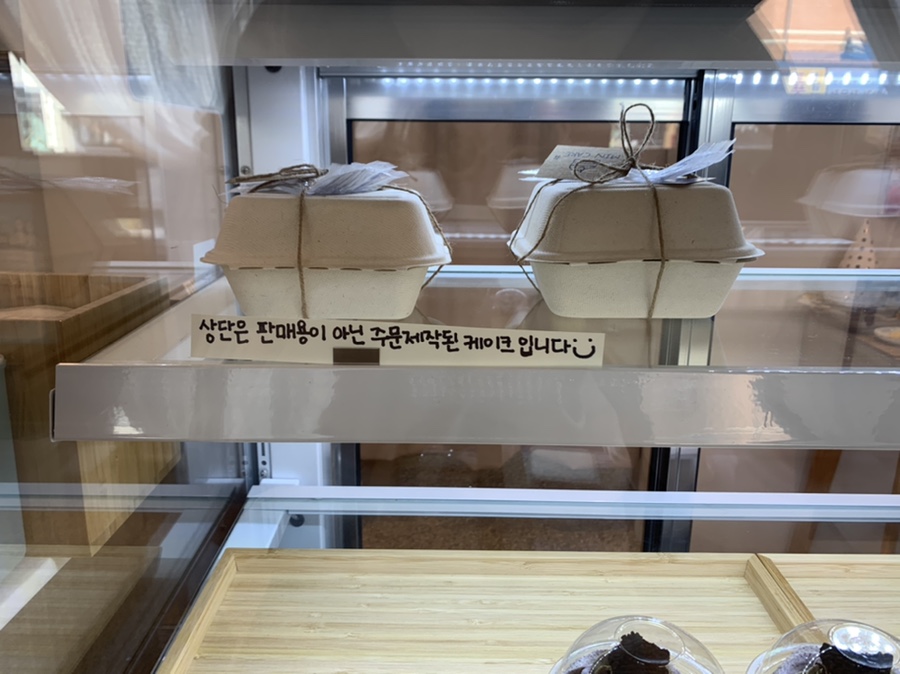 상단은 판매용이 아닌 주문제작된 케이크 입니다